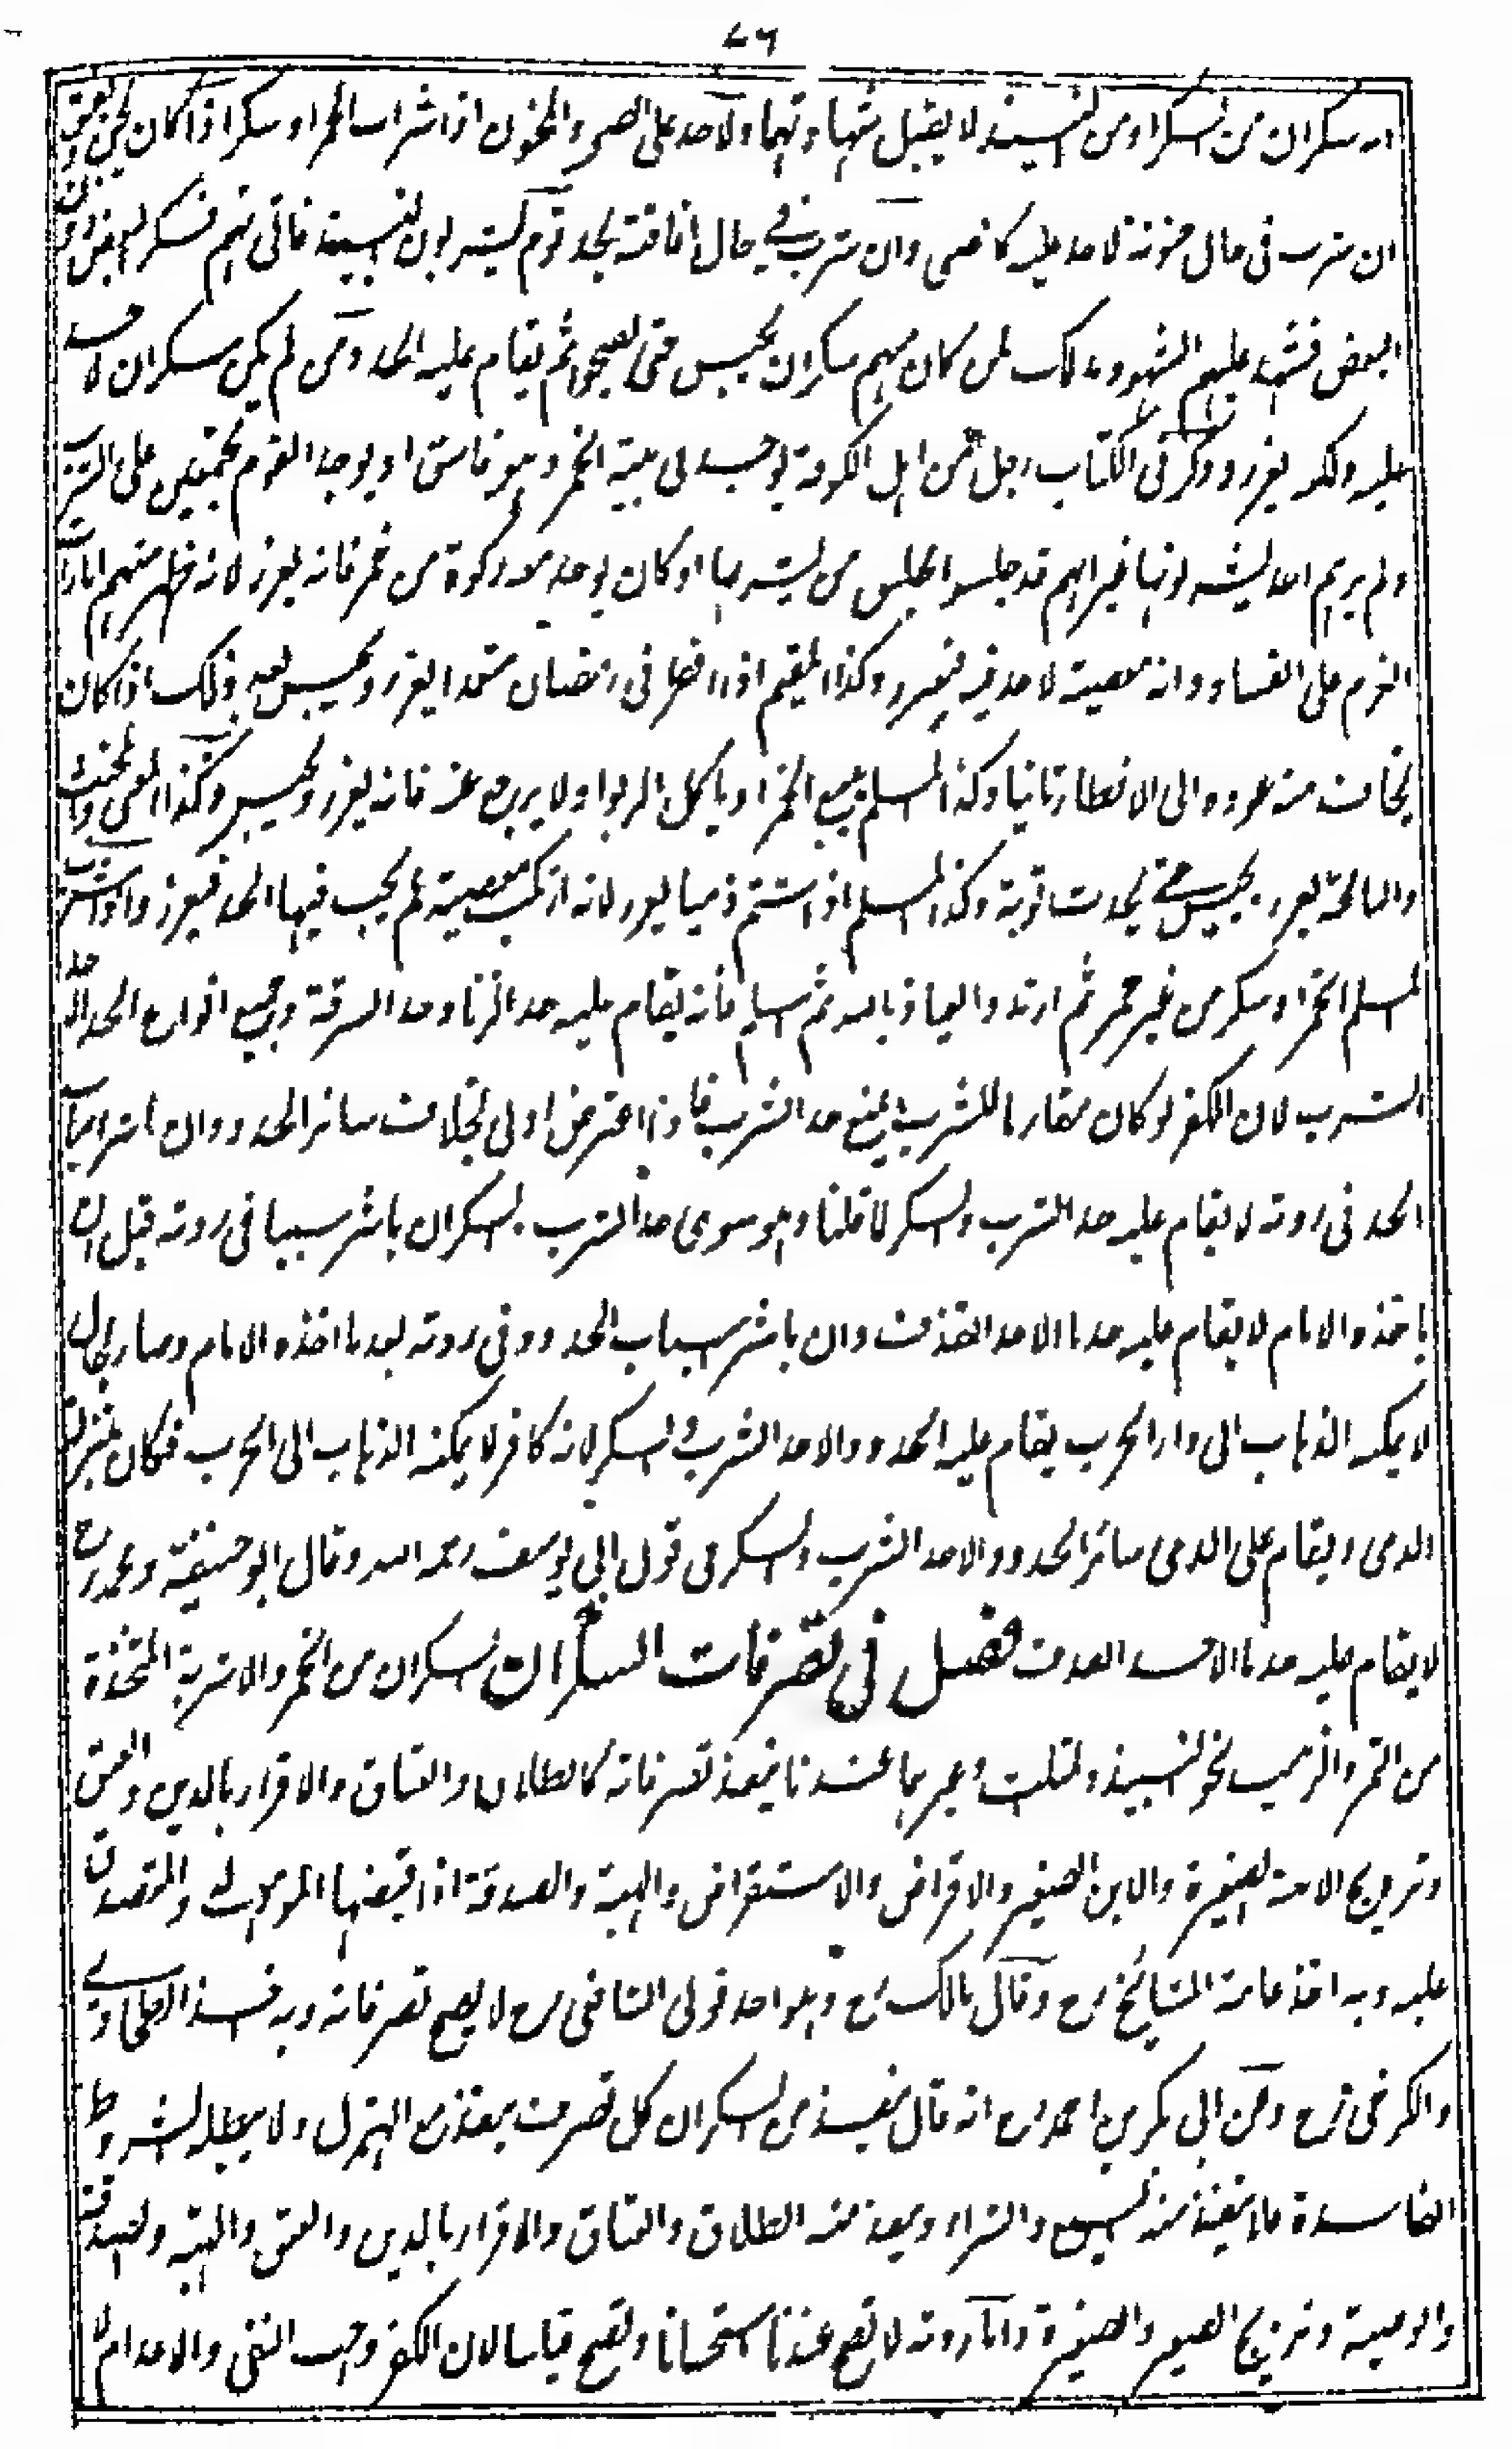 ٧٦
انه سكران من السكر او من النبيذ لا يقبل شهادتهما ولا حد على الصبي والمجنون اذا شرب الخمر او سكر اذا كان يجن ويفيق
ان شرب في حال جنونه لا حد عليه كالصبي وان شرب في حال افاقته يحد قوم يشربون النبيذ فاتى بهم فسكر البعض دون
البعض فشهد عليهم الشهود بذلك فمن كان منهم سكران يحبس حتى يصحو ثم يقام عليه الحد ومن لم يكن سكران لا حد
عليه ولكنه يعزر وذكر في الكتاب رجل من اهل الكوفة يوجد في بيته الخمر وهو فاسق او يوجد القوم مجتمعين على الشراب
ولم يرهم احد يشربونها غير انهم قد جلسوا مجلس من يشربها او كان يوجد معه ركوة من خمر فانه يعزر لانه ظهر منهم امارات
العزم على الفساد وانه معصية لا حد فيه فيعزر وكذا المقيم اذا افطر في رمضان متعمدا يعزر ويحبس بعد ذلك اذا كان
يخاف منه عوده الى الافطار ثانيا وكذا المسلم يبيع الخمر او ياكل الربوا ولا يرجع عنه فانه يعزر ويحبس وكذا المغني والمخنث
والنائحة يعزر ويحبس حتى يحدث توبة وكذا المسلم اذا شتم ذميا يعزر لانه ارتكب معصية لم يجب فيها الحد فيعزر واذا شرب
المسلم الخمر او سكر من غير خمر ثم ارتد والعياذ بالله ثم اسلم فانه يقام عليه حد الزنا وحد السرقة وجميع انواع الحد الا حد
الشرب لان الكفر لو كان مقارنا للشرب يمنع حد الشرب فاذا اعترض اولى بخلاف سائر الحدود وان باشر اسباب
الحد في ردته لا يقام عليه حد الشرب والسكر لما قلنا وهو سوى حد الشرب والسكر ان باشر سببا في ردته قبل ان
ياخذه الامام لا يقام عليه حد ما الا حد القذف وان باشر اسباب الحدود في ردته بعد ما اخذه الامام وصار بحال
لا يمكنه الذهاب الى دار الحرب يقام عليه الحدود الا حد الشرب والسكر لانه كافر لا يمكنه الذهاب الى الحرب فكان بمنزلة
الذمي ويقام على الذمي سائر الحدود الا حد الشرب والسكر في قول ابي يوسف رحمه الله وقال ابو حنيفة ومحمد رح
لا يقام عليه حد ما الا حد القذف فصل في تصرفات السكران السكران من الخمر والاشربة المتخذة
من التمر والزبيب نحو النبيذ والمثلث وغيرهما عندنا ينفذ تصرفاته كالطلاق والعتاق والاقرار بالدين والعتق
وتزويج الابنة الصغيرة والابن الصغير والاقراض والاستقراض والهبة والصدقة اذا قبضها الموهوب له والمتصدق
عليه وبه اخذ عامة المشائخ رح وقال مالك رح وهو احد قولي الشافعي رح لا يصح تصرفاته وبه اخذ الطحاوي
والكرخي رح وعن ابي بكر بن احمد رح انه قال ينفذ من السكران كل تصرف ينفذ مع الهزل ولا يبطله الشروط
الفاسدة فلا ينفذ منه البيع والشراء وينفذ منه الطلاق والعتاق والاقرار بالدين والعتق والهبة والصدقة
والوصية وتزويج الصغير والصغيرة واما ردته لا تصح عندنا استحسانا وتصح قياسا لان الكفر واجب النفي والاعدام لا